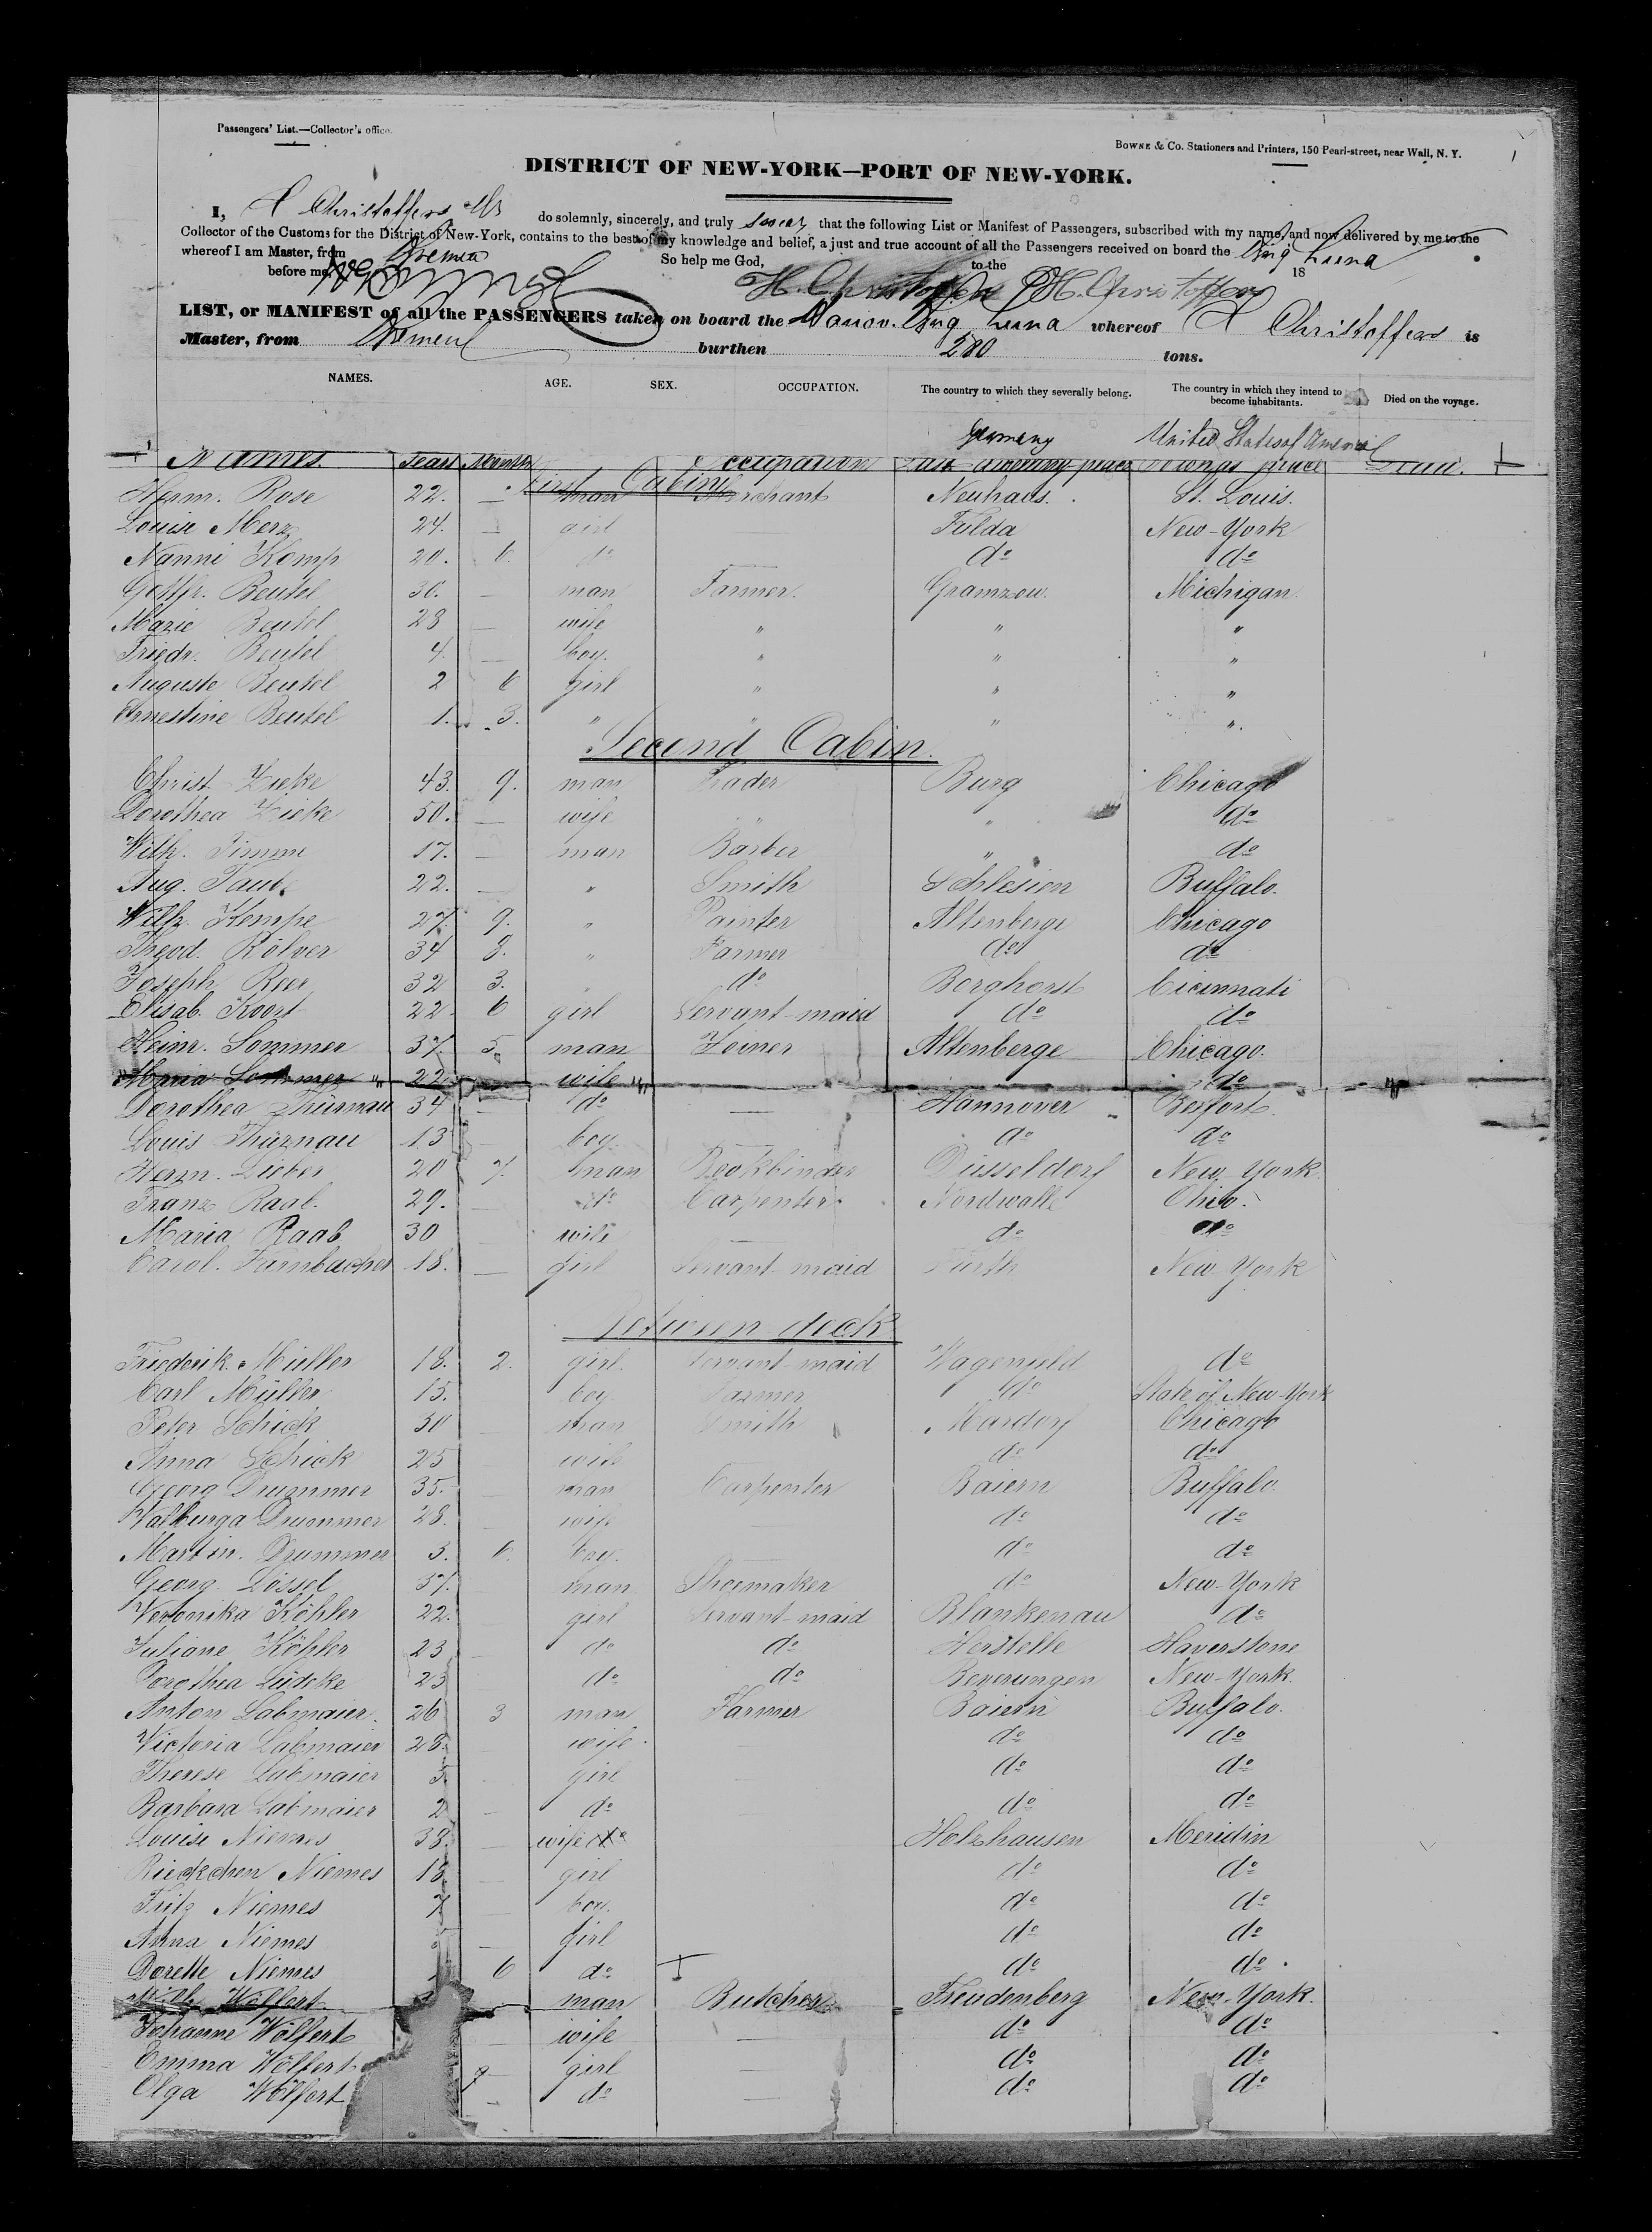 Passengers' List.—Collector's office.
BOWNE & Co. Stationers and Printers, 150 Pearl-street, near Wall, N. Y.
DISTRICT OF NEW-YORK—PORT OF NEW-YORK.
I, H Christoffers do solemnly, sincerely, and truly swear that the following List or Manifest of Passengers, subscribed with my name, and now delivered by me to the
Collector of the Customs for the District of New-York, contains to the best of my knowledge and belief, a just and true account of all the Passengers received on board the Brig
whereof I am Master, from Bremen
So help me God, to the 18
before me, H. Christoffers H. Christoffers
LIST, or MANIFEST of all the PASSENGERS taken on board the Hanov. Brig whereof H Christoffers is
Master, from Bremen burthen 280 tons.
NAMES. AGE. SEX. OCCUPATION. The country to which they severally belong. The country in which they intend to become inhabitants. Died on the voyage.
Germany United States of America
Names. Years Months Occupation Died.
First Cabin
Herm. Rose 22. — man Merchant Neuhaus. St. Louis.
Louise Merz 24. — girl — Fulda New-York
Nanni Komp 20. 6. do — do do
Gottfr. Beutel 30. — man Farmer. Gramzow. Michigan
Marie Beutel 28 — wife " " "
Friedr. Beutel 4. — boy. " " "
Auguste Beutel 2 6 girl " " "
Ernestine Beutel 1. 3. " " " ".
Second Cabin.
Christ. Zieke 43. 9. man Trader Burg Chicago
Dorothea Zieke 50. — wife " " do
Wilh. Timme 17. — man Barber " do
Aug. Taube 22. — " Smith Schlesien Buffalo.
Wilh. Kempe 27. 9. " Painter Altenberge Chicago
Theod. Rölver 34 8. " Farmer do do
Joseph. 32 3. " do Borghorst Cicinnati
Elisab. Koort 22. 6 girl Servant-maid do do
Heinr. Sommer 37. 5. man Joiner Altenberge Chicago.
Maria Sommer 22. wife " do
Dorothea Thürnau 34 — do — Hannover
Louis Thürnau 13 boy. — do do
Herm. Lieber 20 7. man Bookbinder Düsseldorf New York.
Franz Raab. 29. — do Carpenter. Nordwalle Ohio.
Maria Raab 30 wife — do do
Carol. Farnbacher 18. — girl Servant-maid Fürth New York
Between deck
Friederik. Müller 18. 2. girl. Servant-maid Wagenfeld do
Carl Müller 15. boy Farmer do State of New-York
Peter Schick 30 man Smith Mardorf Chicago
Anna Schick 25 wife do do
Georg Drummer 35. man Carpenter Baiern Buffalo.
Walburga Drummer 28. wife — do do
Martin. Drummer 3. 6. boy. — do do
Georg. Lössel 37. man Shoemaker do New-York
Veronika Köhler 22. girl Servant-maid Blankenau do
Juliane Köhler 23 do do Herstelle Haverstone
Dorothea Lüdeke 23 do do Beverungen New-York.
Anton Labmaier. 26 3 man Farmer Baiern Buffalo.
Victoria Labmaier 28. wife. — do do
Therese Labmaier 5. girl — do do
Barbara Labmaier 2 — do do do
Louise Niemes 38. wife Holzhausen Meridin
Rieckchen Niemes 18. girl do do
Fritz Niemes 7 — boy. do do
Anna Niemes — girl do do
Dorette Niemes 6 do do do.
Wölfert man Butcher Freudenberg New-York.
Johanne Wölfert wife — do do
Emma Wölfert 9 girl — do do
Olga Wölfert — do — do do